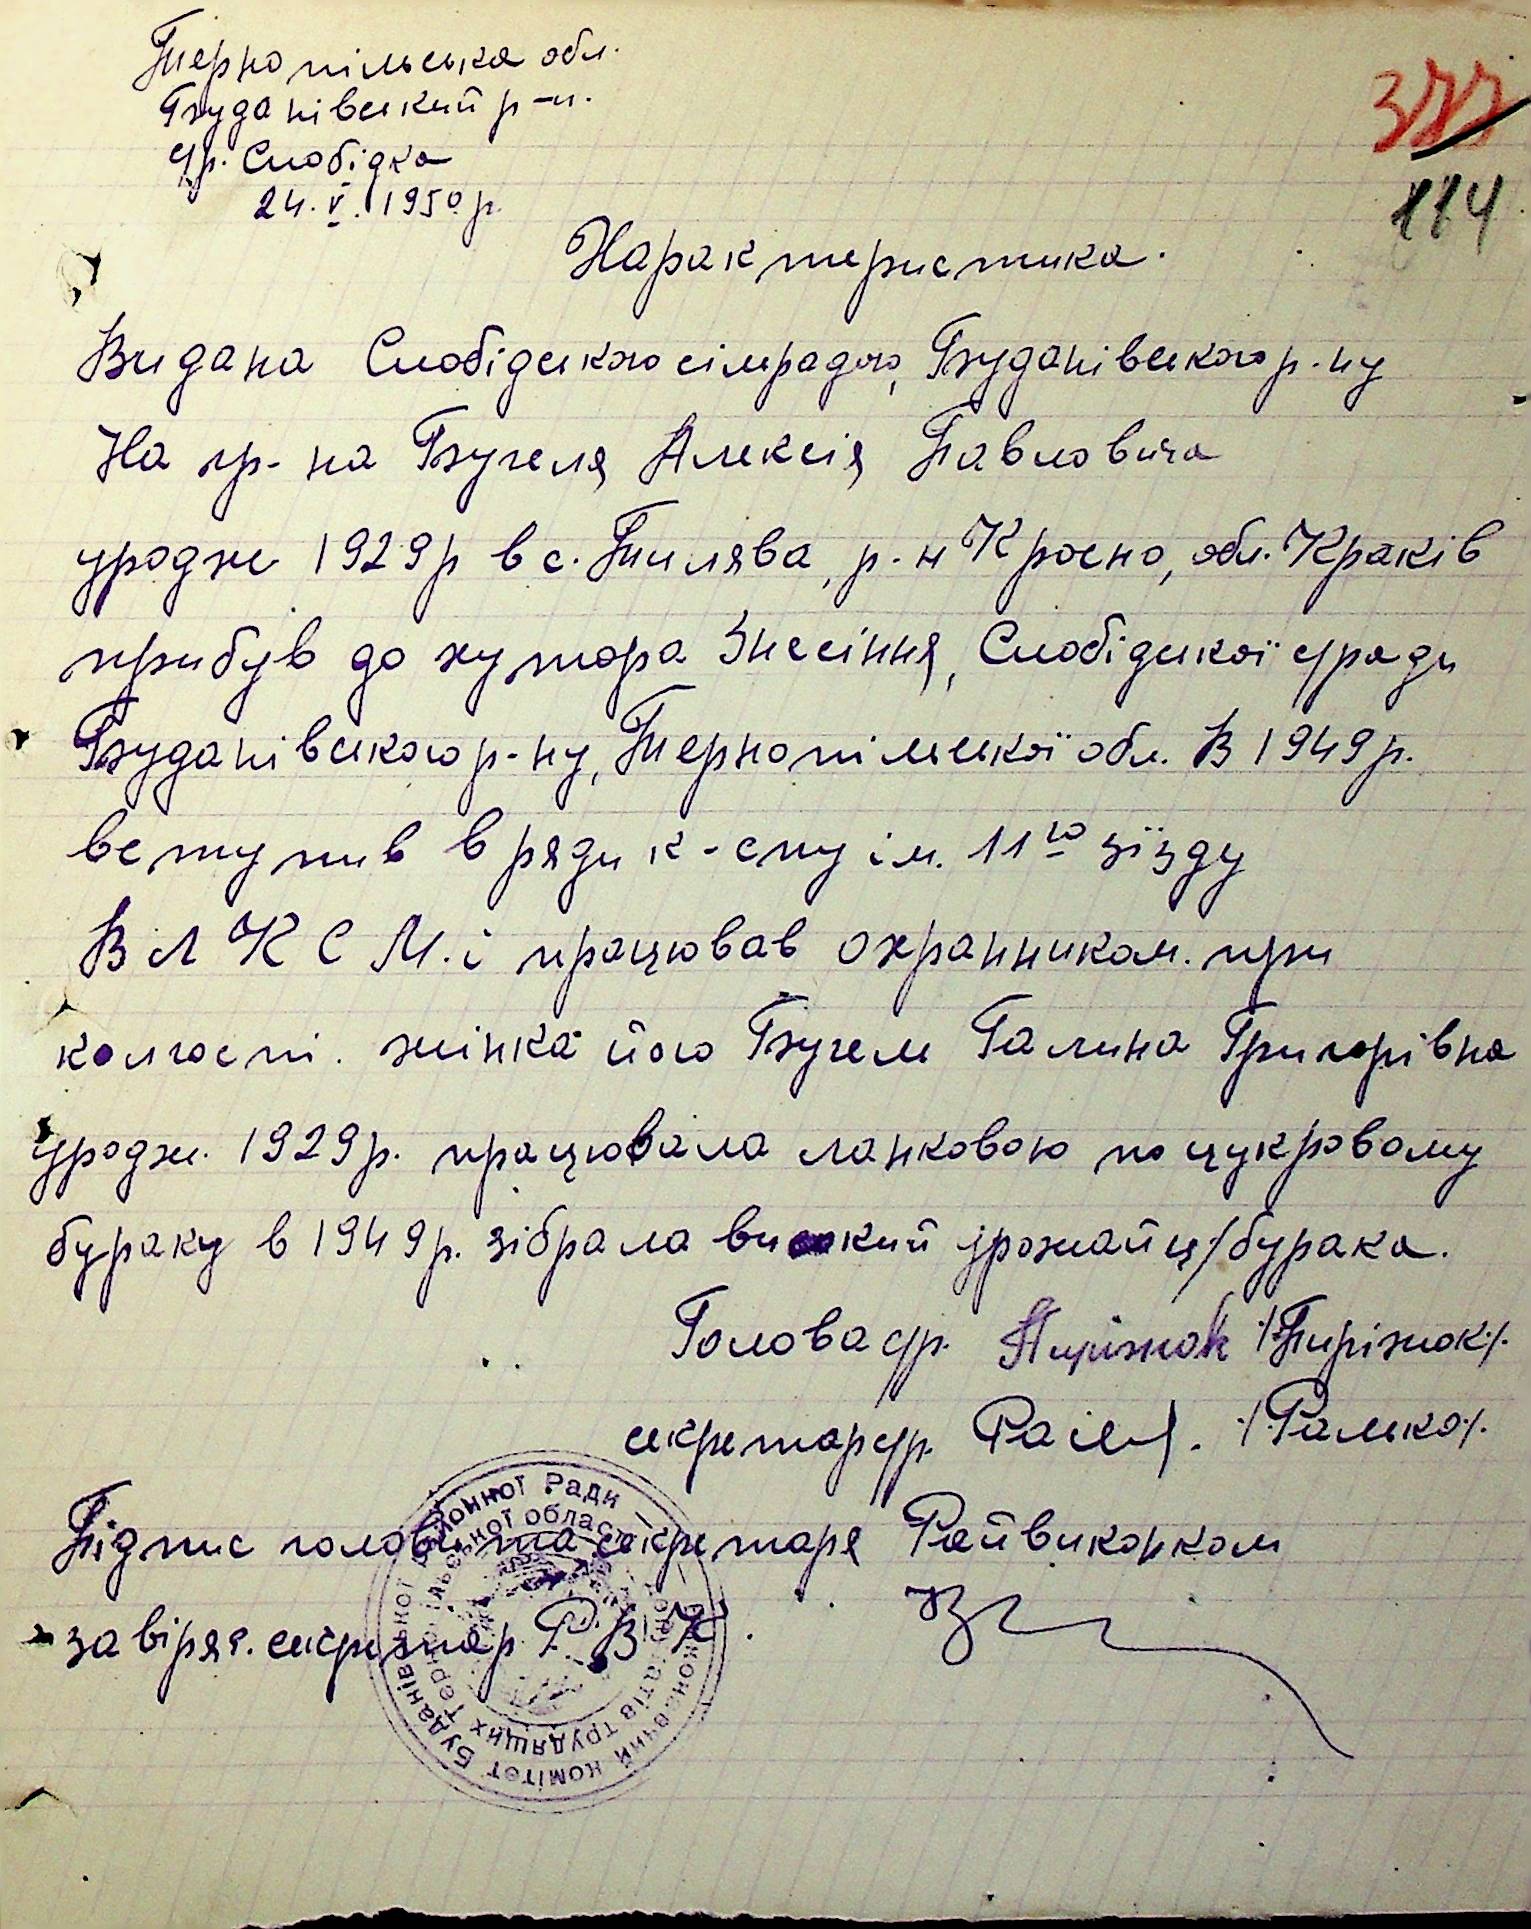 Тернопільська обл.
Буданівский р-н.
с/р. Слобідка
24. V. 1950 р.
377
114
Характеристика.
Видана Слобідською сільрадою, Буданівського р-ну
На гр-на Бугеля Алексія Павловича
уродж 1929 р в с. Тилява, р-н Кросно, обл. Краків
прибув до хутора Знесіння, Слобідської с/ради
Буданівського р-ну, Тернопільської обл. В 1949 р.
вступив в ряди к-спу ім. 11го зїзду
ВЛКСМ. і працював охранником. при
колгоспі. жінка його Бугель Галина Григорівна
уродж. 1929 р. працювала ланковою по цукровому
бураку в 1949 р. зібрала високий урожай ц/бурака.
Голова с/р. Пиріжок /Пиріжок/.
секретар с/р. /Ралько/.
Підпис голови та секретаря Райвиконком
завіряє. секретар Р. В. К.
Виконавчий комітет Буданівської районної Ради
депутатів трудящих Тернопільської області